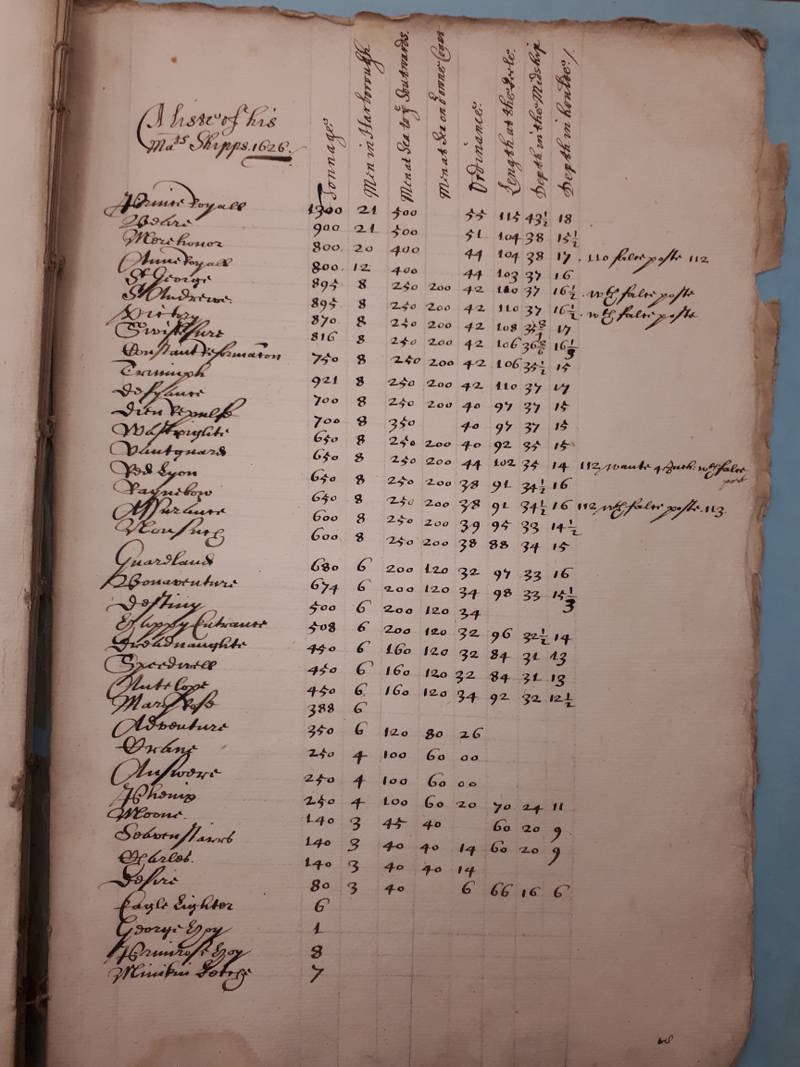 A liste of his
Mats Shipps. 1626.
Tonnage
Men in Harborough
Men at Sea to ye Southwards.
Men at Sea on
Ordinance.
Length at the Keele.
Depth in the Midship
Depth in
Prince Royall 1300 21 500 55 115 43½ 18
Beare 900 21 500 51 104 38 15½
Merehonor 800 20 400 44 104 38 17 . 110 false poste 112
Anne Royall 800 12 400 44 103 37 16
St George 895 8 250 200 42 110 37 16½ . wth false poste
St Andrewe 895 8 250 200 42 110 37 16½ . wth false poste
Victory 870 8 250 200 42 108 35 17
Swiftsure 816 8 250 200 42 106 36 16⅓
Constant Reformation 750 8 250 200 42 106 35½ 15
Triumph 921 8 250 200 42 110 37 17
Defyance 700 8 250 200 40 97 37 15
Dieu Repulse 700 8 350 40 97 37 15
Wastpighte 650 8 250 200 40 92 35 15
Vantguard 650 8 250 200 44 102 35 14 112 wants 4 Inch. wth false post
Red Lyon 650 8 250 200 38 91 34½ 16
Raynebow 650 8 250 200 38 91 34½ 16 112 wth false poste. 113.
Assurance 600 8 250 200 39 95 33 14½
Nonsuch 600 8 250 200 38 88 34 15
Guardland 680 6 200 120 32 97 33 16
Bonaventure 674 6 200 120 34 98 33 15⅓
Destiny 500 6 200 120 34
Happy Entrance 508 6 200 120 32 96 32½ 14
Dreadnaughte 450 6 160 120 32 84 31 13
Speedwell 450 6 160 120 32 84 31 13
Antelope 450 6 160 120 34 92 32 12½
Mary Rose 388 6
Adventure 350 6 120 80 26
Crane 250 4 100 60 00
Answere 250 4 100 60 00
Phenix 250 4 100 60 20 70 24 11
Moone. 140 3 45 40 60 20 9
Seaven Starrs 140 3 40 40 14 60 20 9
Charles. 140 3 40 40 14
Desire 80 3 40 6 66 16 6
Eagle Lighter 6
George Hoy 1
Primrose Hoy 8
Minikin 7